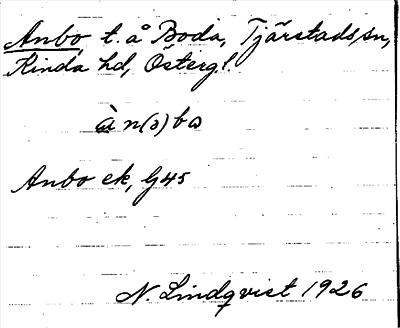 Anbo, t. å Boda, Tjärstads sn,
Kinda hd, Östergl.
àn(ɔ)bɷ
Anbo ek, G45
N. Lindqvist 1926